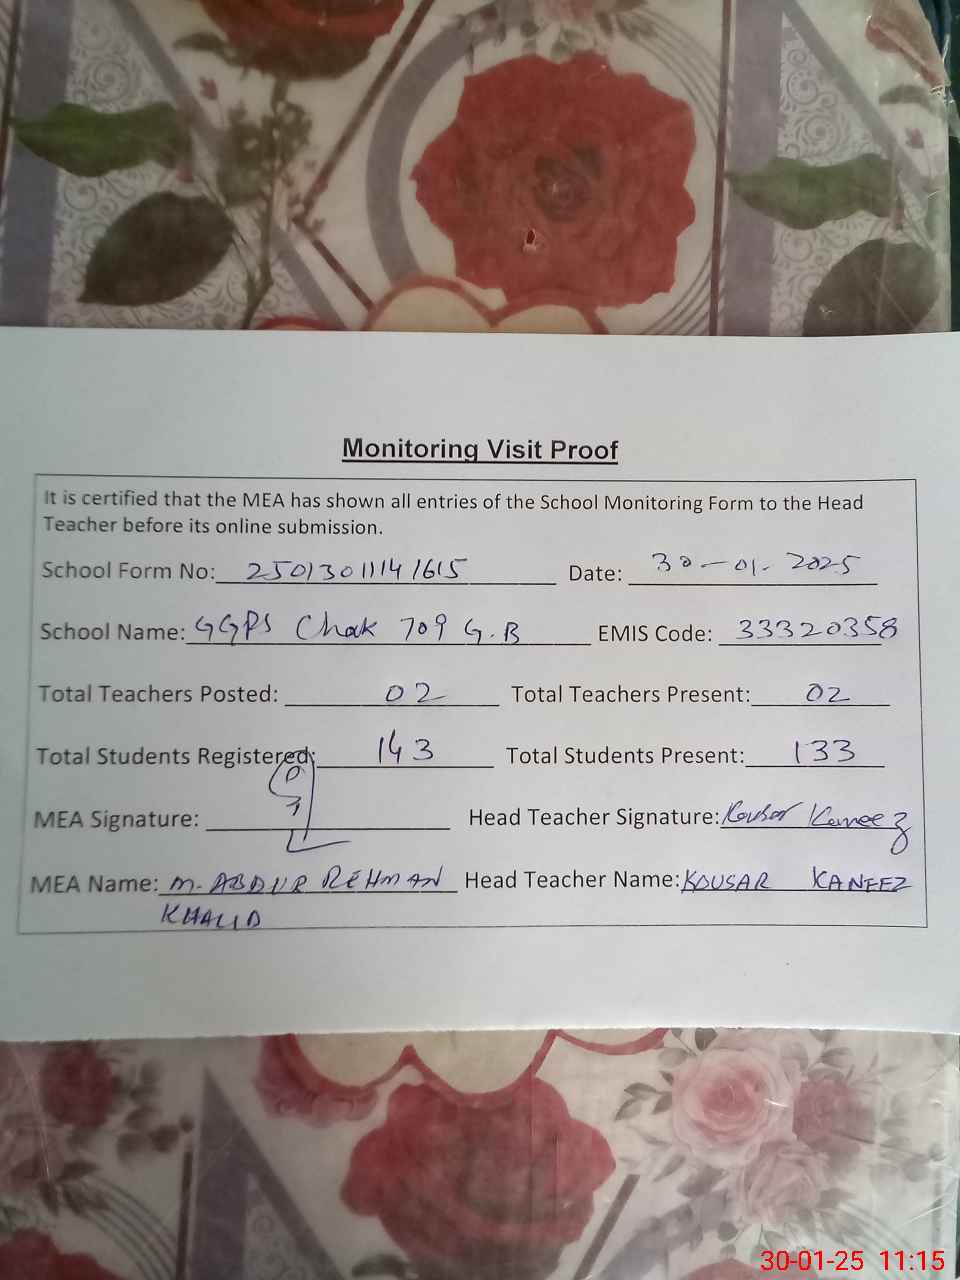 Monitoring Visit Proof
It is certified that the MEA has shown all entries of the School Monitoring Form to the Head
Teacher before its online submission.
School Form No: 25013011141615 Date: 30-01-2025
School Name: GGPS Chak 709 G.B EMIS Code: 33320358
Total Teachers Posted: 02 Total Teachers Present: 02
Total Students Registered: 143 Total Students Present: 133
MEA Signature: Head Teacher Signature: Kousar Kaneez
MEA Name: M. ABDUR REHMAN Head Teacher Name: KOUSAR KANEEZ
KHALID
30-01-25 11:15